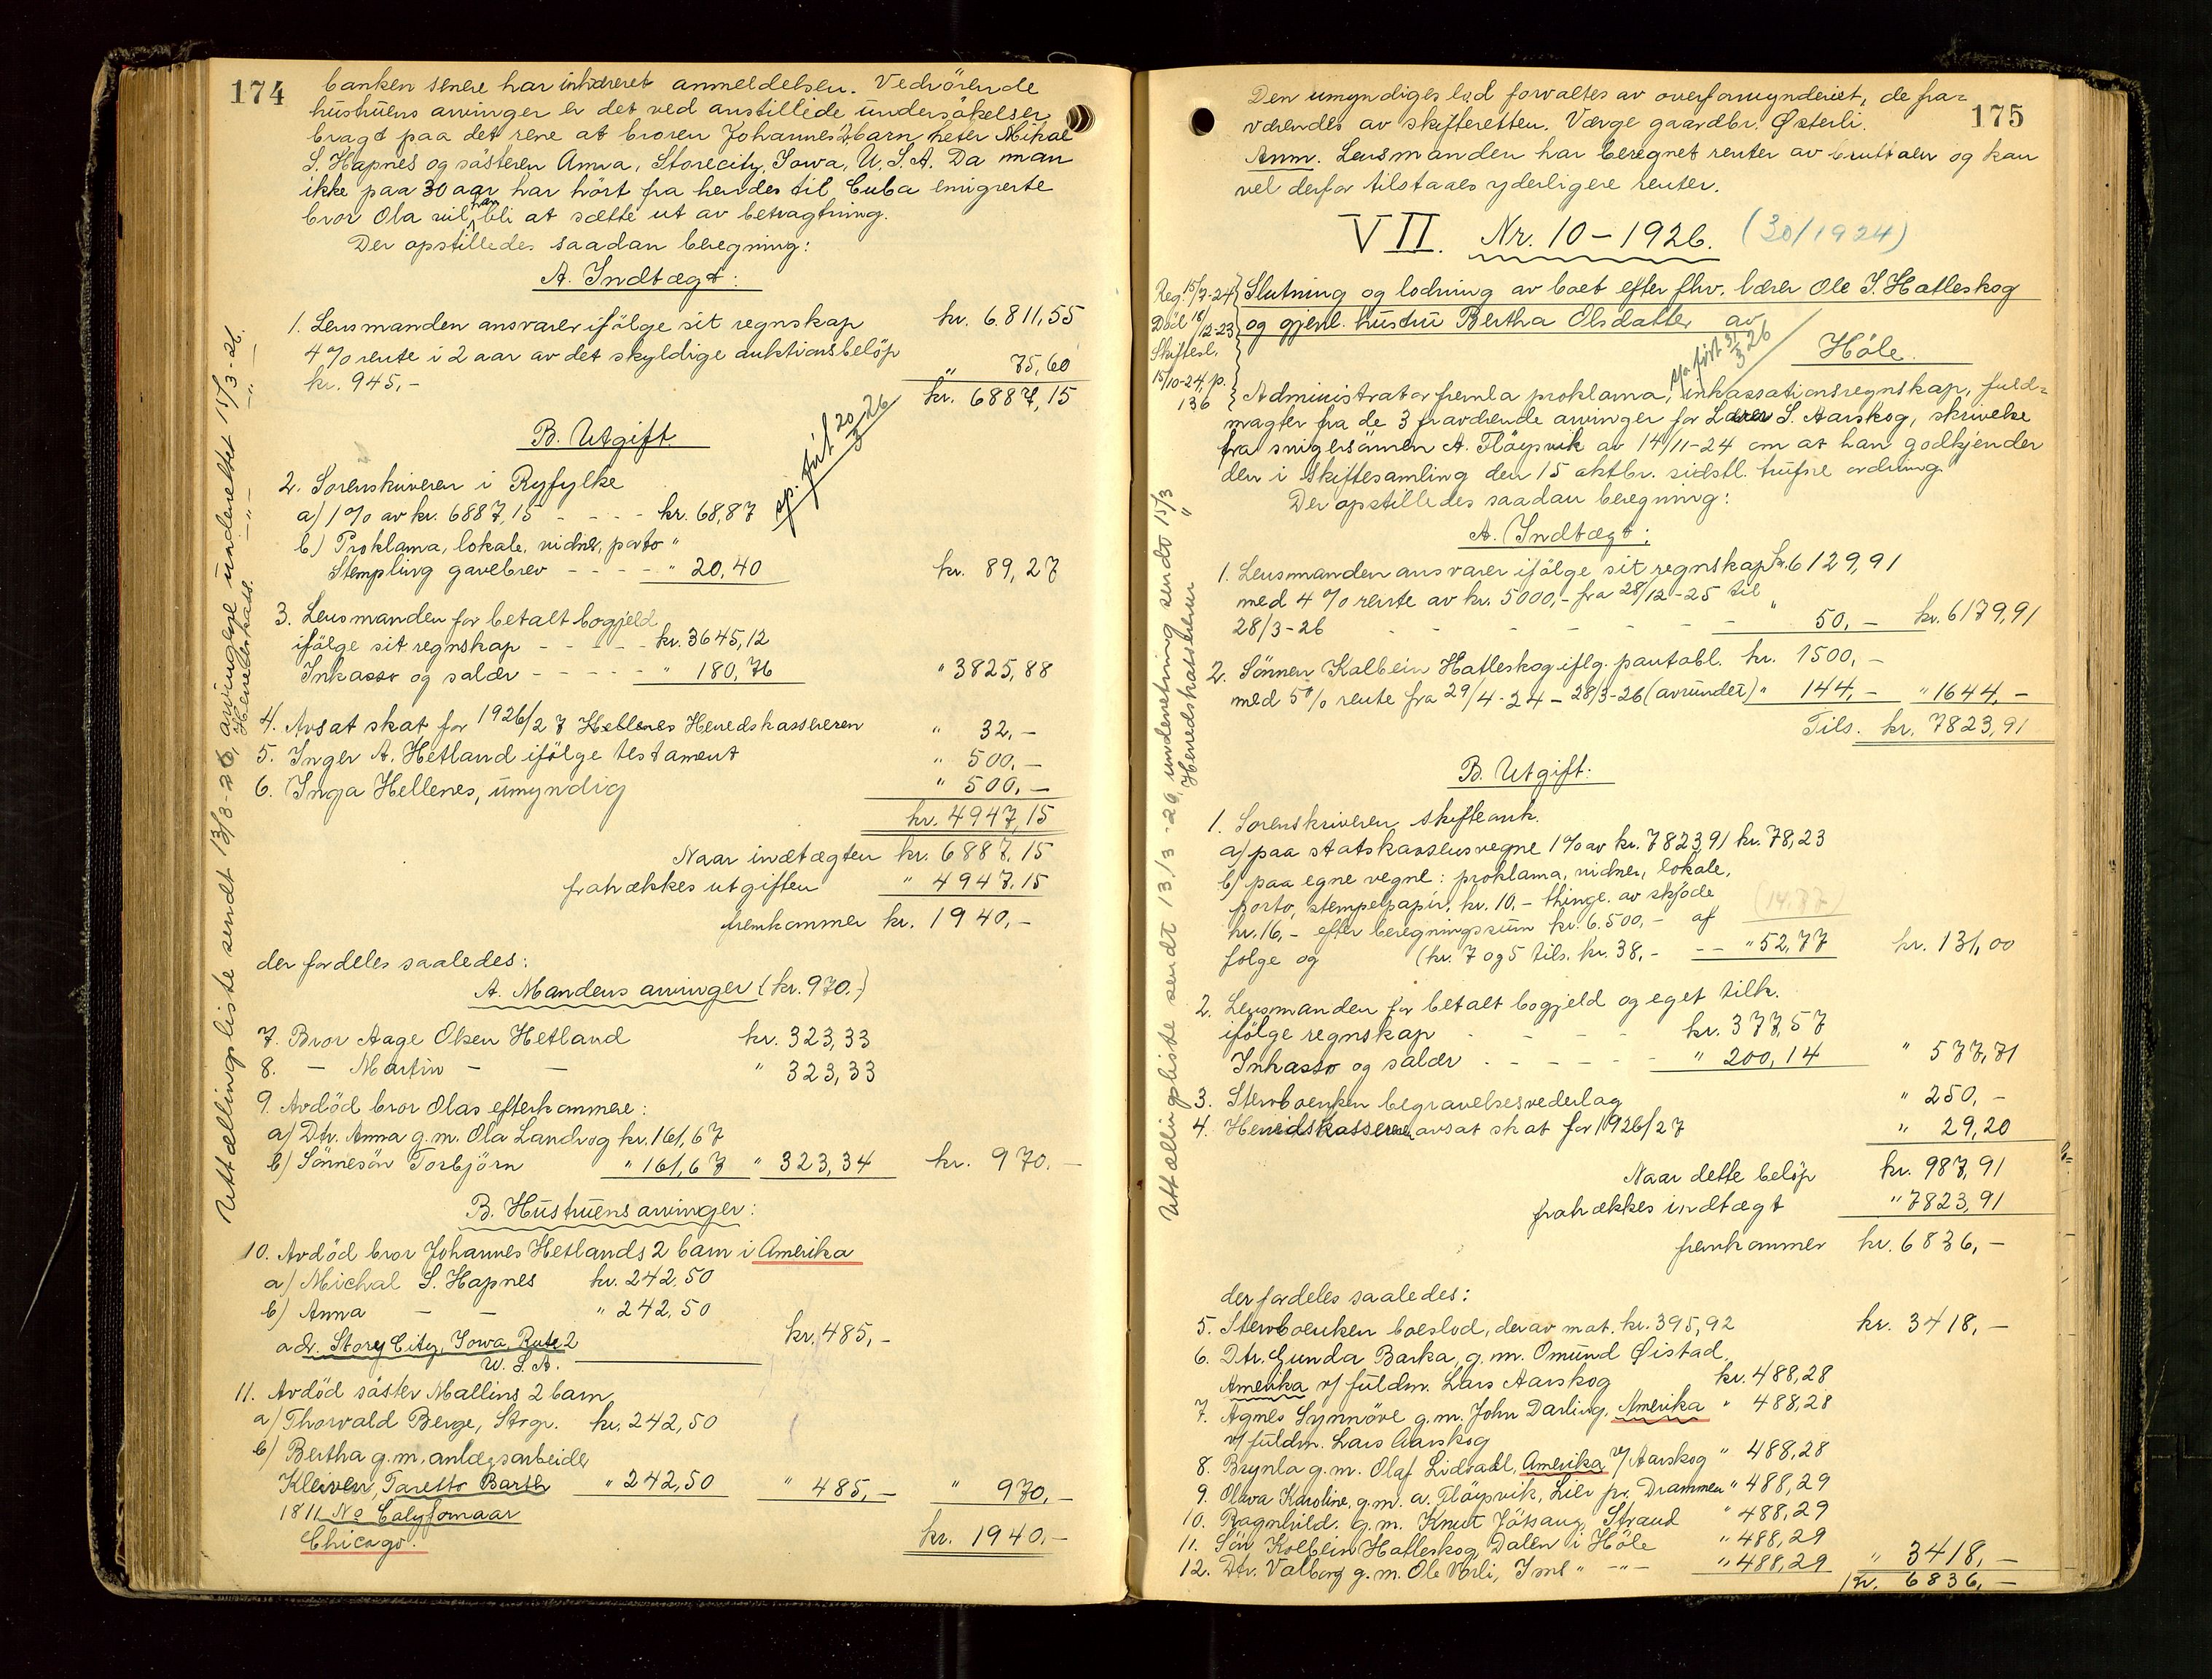 174
banken senere har inhæreret anmeldelsen. Vedrörende
hustruens arvinger er det ved anstillede undersökelser
bragt paa det rene at broren Johannes' 2 barn heter Mikal
S. Hapnes og sösteren Anna, Storecity, Iowa, U.S.A. Da man
ikke paa 30 aar har hört fra hendes til Cuba emigrerte
bror Ola vil han bli at sætte ut av betragtning.
Der opstilledes saadan beregning:
A. Indtægt:
1. Lensmanden ansvarer ifölge sit regnskap kr. 6.811,55
4% rente i 2 aar av det skyldige auktionsbelöp
kr. 945,- " 75,60
kr. 6887,15
B. Utgift. sp. fört 20/3-26
2. Sorenskriveren i Ryfylke
a) 1% av kr. 6887,15 - - - - kr. 68,87
b) Proklama, lokale, vidner, porto "
Stempling gavebrev - - - - " 20,40 kr. 89,27
3. Lensmanden for betalt bogjeld
ifölge sit regnskap - - - - - kr. 3645,12
Inkasso og salær - - - - - " 180,76 " 3825,88
4. Avsat skat for 1926/27 Hellenes Herredskassereren " 32,-
5. Inger A. Hetland ifölge testament " 500,-
6. Inga Hellenes, umyndig " 500,-
kr. 4947,15
Naar indtægten kr. 6887,15
fratrækkes utgiften " 4947,15
fremkommer kr. 1940,-
der fordeles saaledes:
A. Mandens arvinger (kr. 970.-)
7. Bror Aage Olsen Hetland kr. 323,33
8. - Martin - - " 323,33
9. Avdöd bror Olas efterkommere:
a) Dtr. Anna g.m. Ola Landsog kr. 161,67
b) Sönnesön Torbjörn " 161,67 " 323,34 kr. 970.-
B. Hustruens arvinger:
10. Avdöd bror Johannes Hetlands 2 barn i Amerika
a) Michal S. Hapnes kr. 242.50
b) Anna - - " 242,50
adr. Story City, Iowa, Rute 2
U.S.A. kr. 485,-
11. Avdöd söster Mallins 2 barn
a) Thorvald Berge, Stvgr. kr. 242,50
b) Bertha g.m. anlægsarbeider
Kleiven, Taretto Barth " 242,50 " 485,- " 970,-
1811 No Calyfornaar
Chicago. kr. 1940.-
Uttællingsliste sendt 13/3-26, arvinglyse underrettet 15/3-26.
Herredskass. -"- -"-
175
Den umyndiges lod forvaltes av overformynderiet, de fra-
værendes av skifteretten. Værge gaardbr. Østerli.
Anm. Lensmanden har beregnet renter av bruttoen og kan
vel derfor tilstaaes yderligere renter.
VII. Nr. 10-1926. (30/1924)
Reg. 15/7-24
Död 18/12-23
Skiftesl.
15/10-24, p.
136
Slutning og lodning av boet efter fhv. lærer Ole S. Hatleskog
og gjenl. hustru Bertha Olsdatter av
sp. fört 31/3 26 Höle.
Administrator fremla proklama, inkassationsregnskap, fuld-
magter fra de 3 fraværende arvinger for Lars S. Aarskog, skrivelse
fra svigersönnen A. Flöysvik av 14/11-24 om at han godkjender
den i skiftesamling den 15 oktbr. sidstl. trufne ordning.
Der opstilledes saadan beregning:
A. Indtægt:
1. Lensmanden ansvarer ifölge sit regnskap kr. 6129,91
med 4% rente av kr. 5000,- fra 28/12-25 til
28/3-26 - - - - - - " 50,- kr. 6179,91
2. Sönnen Kolbein Hatleskog iflg. pantobl. kr. 1500,-
med 5% rente fra 29/4-24 - 28/3-26 (avrundet) " 144,- " 1644,-
Tils. kr. 7823,91
B. Utgift:
1. Sorenskriveren, skifteank.
a) paa statskassens vegne 1% av kr. 7823,91 kr. 78,23
b) paa egne vegne: proklama, vidner, lokale,
porto, stempelpapir, kr. 10,- thingl. av skjöde (14.77)
kr. 16,- efter beregningssum kr. 6.500,- af
folge og (kr. 7 og 5 tils. kr. 38,- -- " 52,77 kr. 131,00
2. Lensmanden for betalt bogjeld og eget tilk.
ifölge regnskap - - - kr. 377,57
Inkasso og salær - - - - - " 200,14 " 577,71
3. Stervboenken begravelsesvederlag " 250,-
4. Herredskassereren avsat skat for 1926/27 " 29,20
Naar dette belöp kr. 987,91
fratrækkes indtægt " 7823,91
fremkommer kr. 6836,-
der fordeles saaledes:
5. Stervboenken boeslod, derav mat. kr. 395,92 kr. 3418,-
6. Dtr. Gunda Barka, g.m. Omund Øistad,
Amerika v/ fuldm. Lars Aarskog kr. 488,28
7. Agnes Synnöve g.m. John Darling, Amerika " 488,28
v/ fuldm. Lars Aarskog
8. Brynla g.m. Olaf Lidvall, Amerika v/ Aarskog " 488,28
9. Olava Karoline, g.m. A. Flöysvik, Lier pr. Drammen " 488,29
10. Ragnhild. g.m. Knut Jötsaug, Strand " 488,29
11. Sön Kolbein Hatleskog, Dalen i Höle " 488,29
12. Dtr. Valborg g.m. Ole Verli, Ims " -"- " 488,29 " 3418,-
kr. 6836,-
Uttællingsliste sendt 13/3-26, underretning sendt 15/3
Herredskassereren "